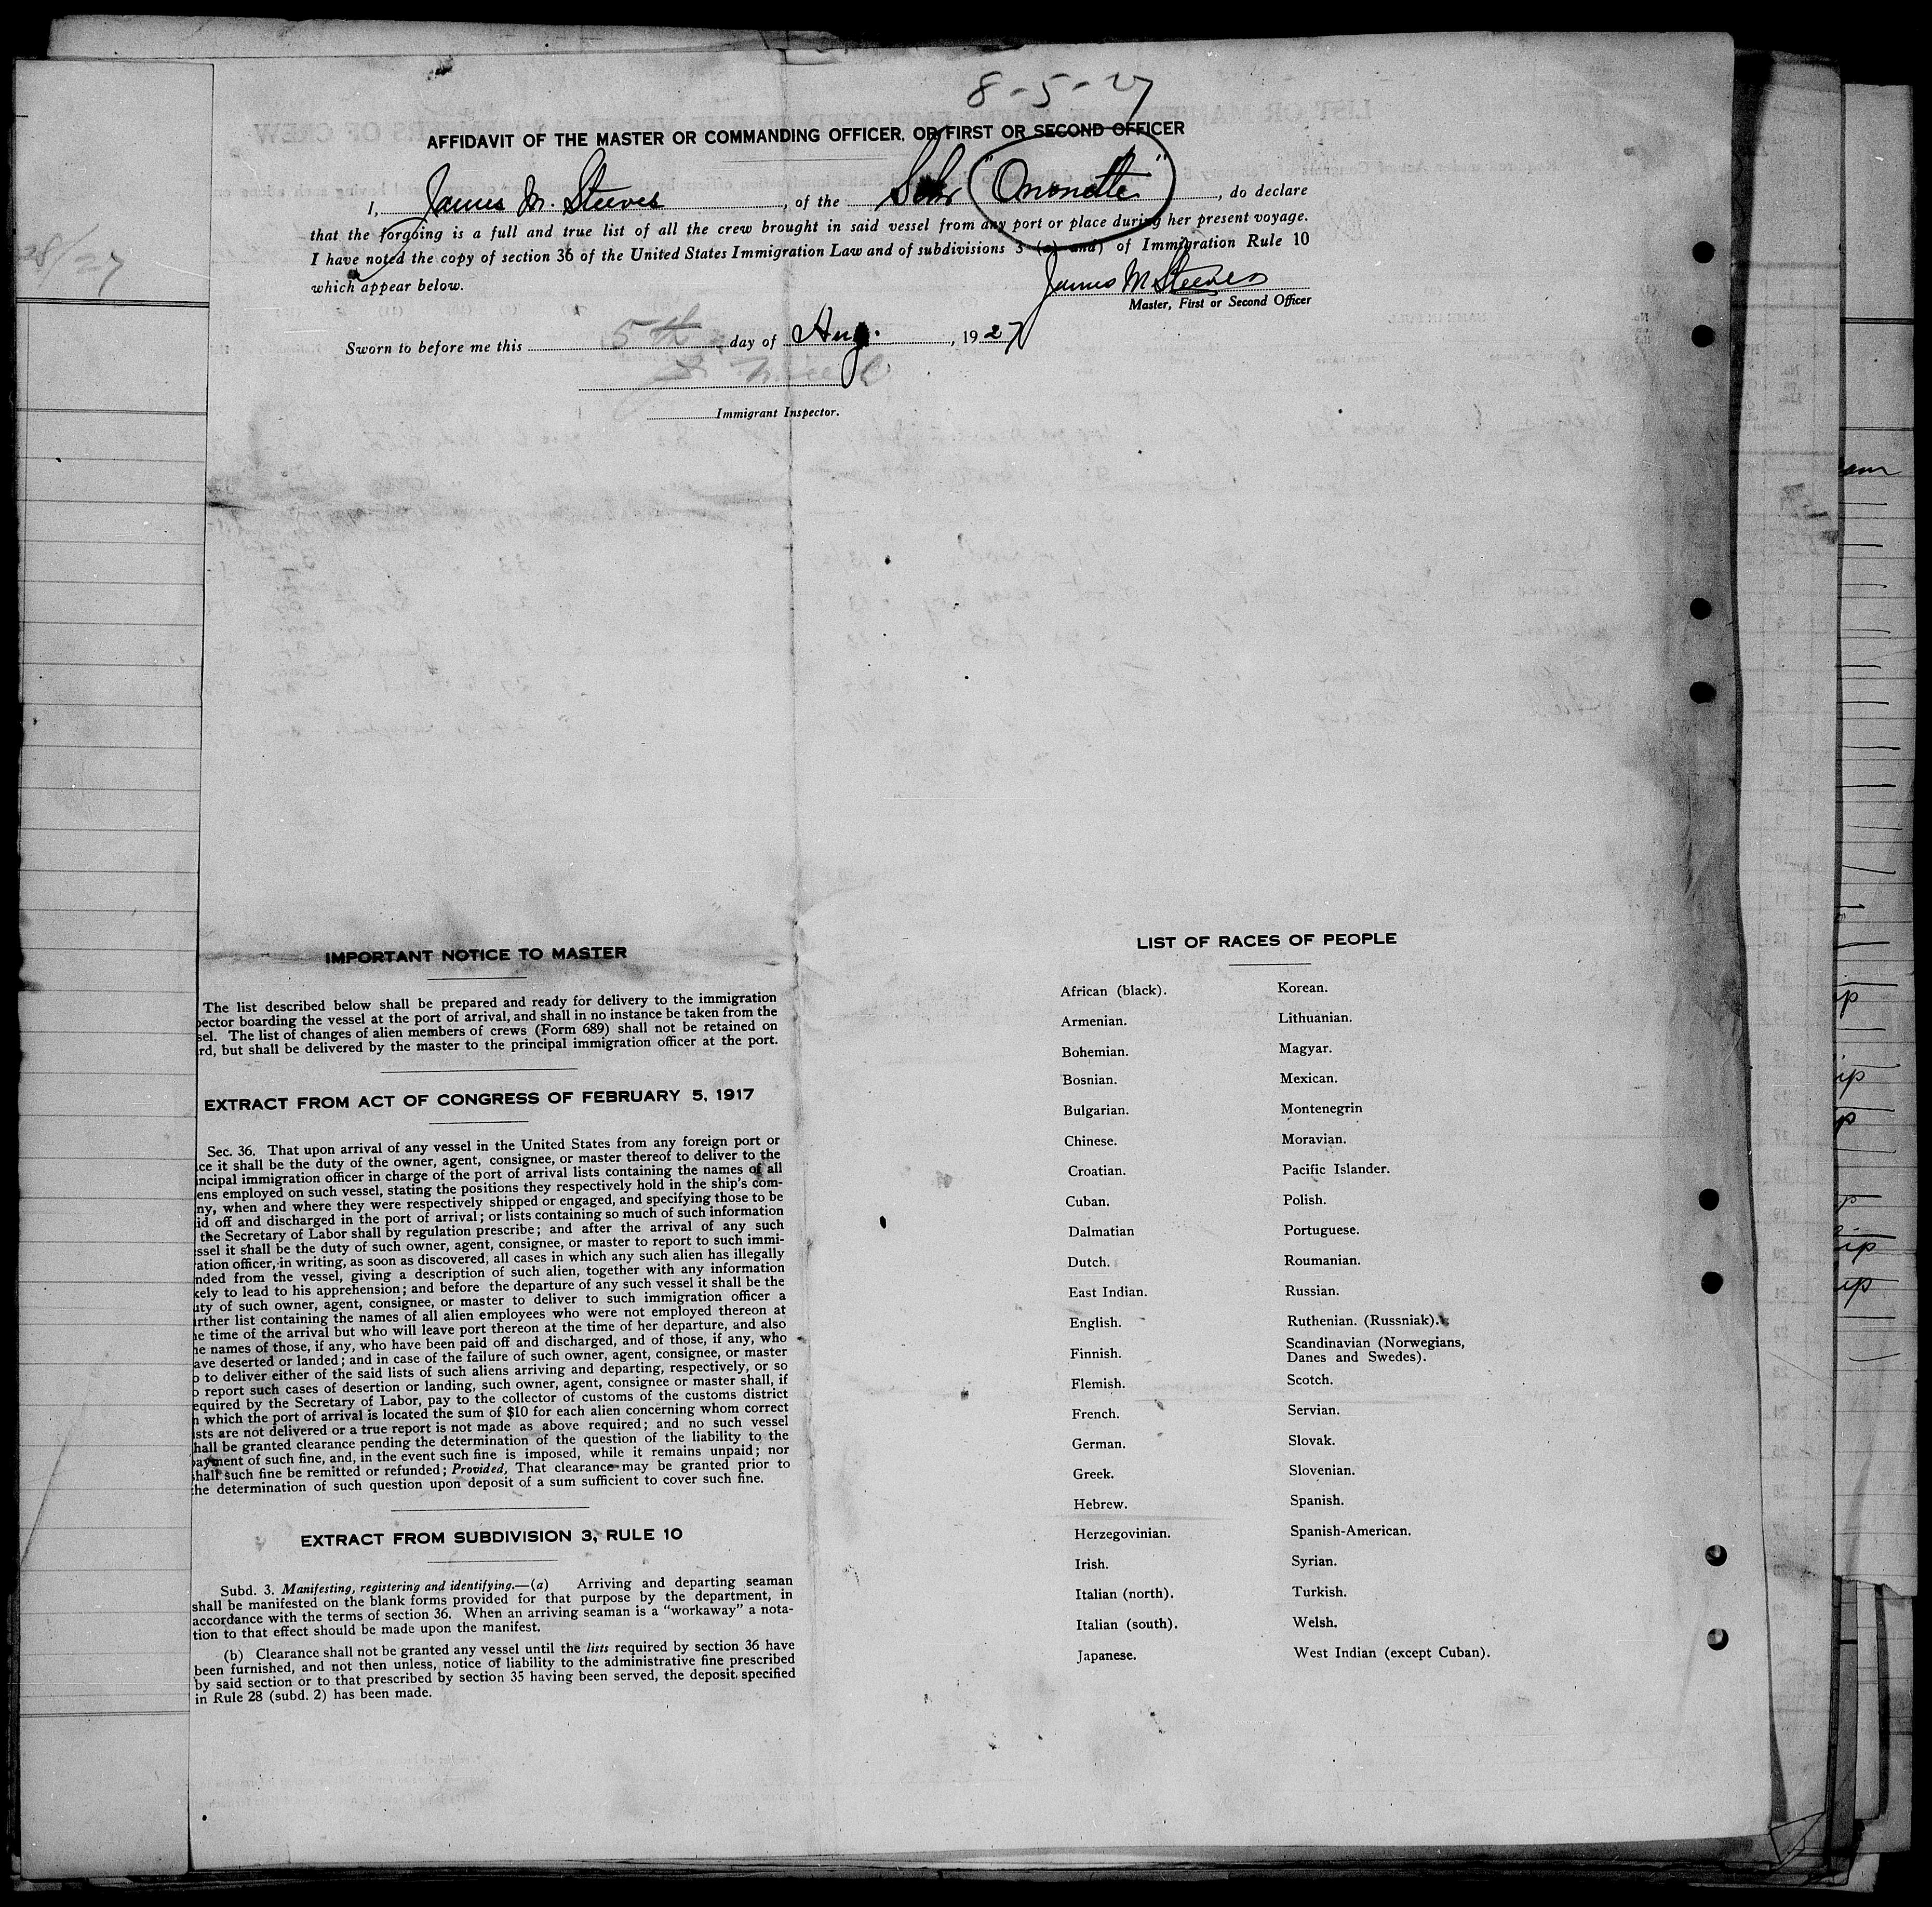 8-5-27
AFFIDAVIT OF THE MASTER OR COMMANDING OFFICER, OR FIRST OR SECOND OFFICER
I, James M. Steeves, of the Schr "Ononette", do declare
that the forgoing is a full and true list of all the crew brought in said vessel from any port or place during her present voyage.
I have noted the copy of section 36 of the United States Immigration Law and of subdivisions 3 (a) and) of Immigration Rule 10
which appear below.
James M Steeves
Master, First or Second Officer
Sworn to before me this 5th day of Aug., 1927
Immigrant Inspector.
28/27
IMPORTANT NOTICE TO MASTER
The list described below shall be prepared and ready for delivery to the immigration
pector boarding the vessel at the port of arrival, and shall in no instance be taken from the
sel. The list of changes of alien members of crews (Form 689) shall not be retained on
rd, but shall be delivered by the master to the principal immigration officer at the port.
EXTRACT FROM ACT OF CONGRESS OF FEBRUARY 5, 1917
Sec. 36. That upon arrival of any vessel in the United States from any foreign port or
ce it shall be the duty of the owner, agent, consignee, or master thereof to deliver to the
incipal immigration officer in charge of the port of arrival lists containing the names of all
ens employed on such vessel, stating the positions they respectively hold in the ship's com-
ny, when and where they were respectively shipped or engaged, and specifying those to be
id off and discharged in the port of arrival; or lists containing so much of such information
the Secretary of Labor shall by regulation prescribe; and after the arrival of any such
ssel it shall be the duty of such owner, agent, consignee, or master to report to such immi-
ation officer, in writing, as soon as discovered, all cases in which any such alien has illegally
nded from the vessel, giving a description of such alien, together with any information
kely to lead to his apprehension; and before the departure of any such vessel it shall be the
uty of such owner, agent, consignee, or master to deliver to such immigration officer a
urther list containing the names of all alien employees who were not employed thereon at
he time of the arrival but who will leave port thereon at the time of her departure, and also
he names of those, if any, who have been paid off and discharged, and of those, if any, who
ave deserted or landed; and in case of the failure of such owner, agent, consignee, or master
o to deliver either of the said lists of such aliens arriving and departing, respectively, or so
o report such cases of desertion or landing, such owner, agent, consignee or master shall, if
equired by the Secretary of Labor, pay to the collector of customs of the customs district
n which the port of arrival is located the sum of $10 for each alien concerning whom correct
ists are not delivered or a true report is not made as above required; and no such vessel
hall be granted clearance pending the determination of the question of the liability to the
payment of such fine, and, in the event such fine is imposed, while it remains unpaid; nor
shall such fine be remitted or refunded; Provided, That clearance may be granted prior to
the determination of such question upon deposit of a sum sufficient to cover such fine.
EXTRACT FROM SUBDIVISION 3, RULE 10
Subd. 3. Manifesting, registering and identifying.—(a) Arriving and departing seaman
shall be manifested on the blank forms provided for that purpose by the department, in
accordance with the terms of section 36. When an arriving seaman is a "workaway" a nota-
tion to that effect should be made upon the manifest.
(b) Clearance shall not be granted any vessel until the lists required by section 36 have
been furnished, and not then unless, notice of liability to the administrative fine prescribed
by said section or to that prescribed by section 35 having been served, the deposit specified
in Rule 28 (subd. 2) has been made.
LIST OF RACES OF PEOPLE
African (black). Korean.
Armenian. Lithuanian.
Bohemian. Magyar.
Bosnian. Mexican.
Bulgarian. Montenegrin
Chinese. Moravian.
Croatian. Pacific Islander.
Cuban. Polish.
Dalmatian Portuguese.
Dutch. Roumanian.
East Indian. Russian.
English. Ruthenian. (Russniak).
Finnish. Scandinavian (Norwegians,
Danes and Swedes).
Flemish. Scotch.
French. Servian.
German. Slovak.
Greek. Slovenian.
Hebrew. Spanish.
Herzegovinian. Spanish-American.
Irish. Syrian.
Italian (north). Turkish.
Italian (south). Welsh.
Japanese. West Indian (except Cuban).